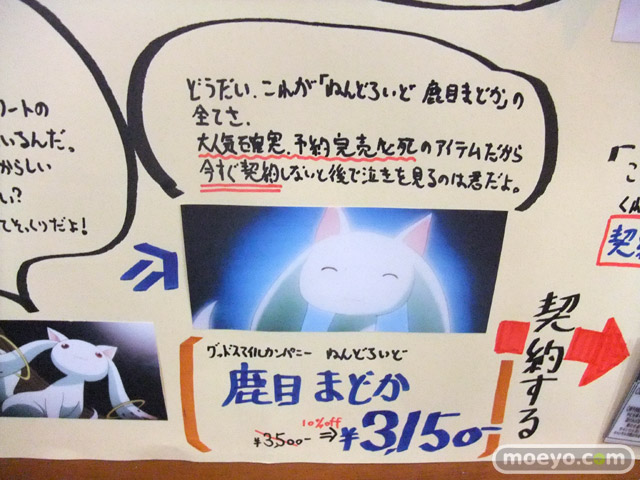 リートの
いるんだ。
からしい
い?
てそっくりだよ!
どうだい、これが「ねんどろいど 鹿目まどか」の
全てさ、
大人気確実、予約完売必死のアイテムだから
今すぐ契約しないと後で泣きを見るのは君だよ。
グッドスマイルカンパニー ねんどろいど
鹿目 まどか
10%off
¥3,500- ⇒ ¥3,150-
契約する
「
こ
契
moeyo.com